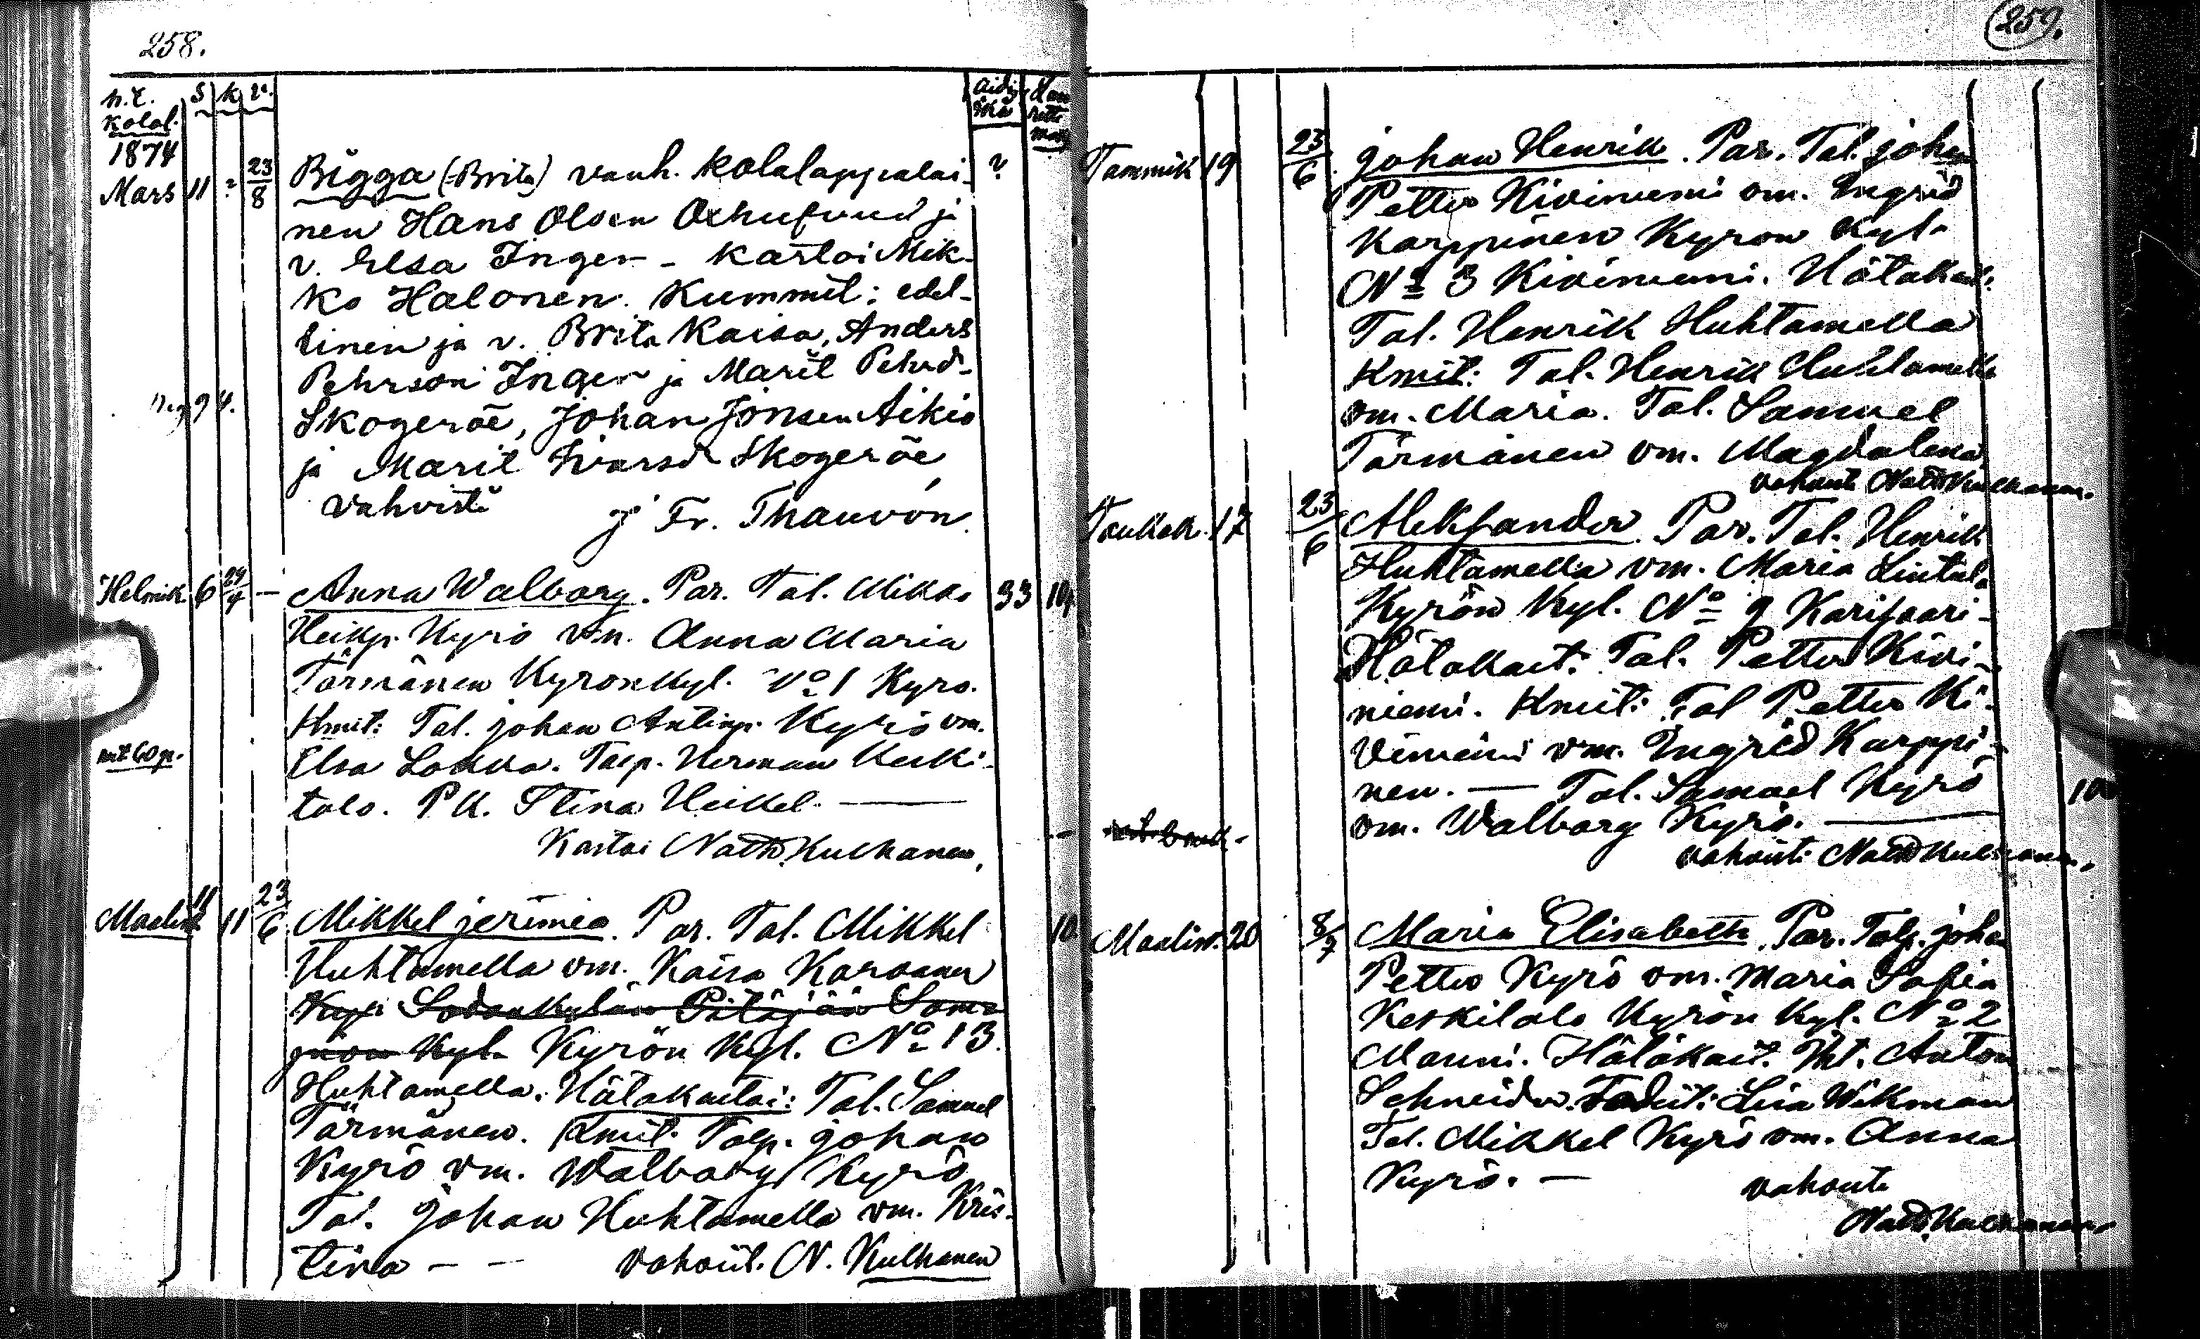 258.
S k v.
Kolal.
1874
Mars 11 ? 23/8 Bigga (Brita) vanh. Kolalappalai- ?
nen Hans Olsen ja
v. Elsa Inger - kastoi Mik-
ko Halonen. Kummit: edel-
linen ja v. Brita Kaisa, Anders
Pehrson Inger ja Marit Pehrd.
Skogeröe, Johan Jonsen Aikio
ja Marit Ivarsd Skogeröe,
vahvisti Fr. Thauvón.
Helmik 6 24/4 - Anna Walborg. Par. Tal. Mikko 33
Heikp. Kyrö vm. Anna Maria
Törmänen Kyrönkyl. No 1 Kyrö.
Kmit: Tal. Johan Antinp. Kyrö vm.
Elsa Lokka. Talp. Herman Keski-
talo. P K. Stina Heikel. —
Kastoi Nath. Kulkanen,
Maalisk. 11 23/6 Mikkel Jerimia. Par. Tal. Mikkel 10
Huhtamella vm. Kaisa
Sodankylän Pitäjän
Kyl. Kyrön Kyl. No 13.
Huhtamella. Hätäkastoi: Tal. Samuel
Törmänen. Kmit: Talp. Johan
Kyrö vm. Walborg Kyrö
Tal. Johan Huhtamella vm. Kris-
tina — — vahvist. N. Kulkanen
259.
Tammik 19 23/6 Johan Henrik. Par. Tal. Johan
Petter Kiviniemi vm. Ingrid
Karppinen Kyrön Kyl.
No 3 Kiviniemi. Hätäkast.
Tal. Henrik Huhtamella
Kmit: Tal. Henrik Huhtamella
vm. Maria. Tal. Samuel
Törmänen vm. Magdalena
vahvist Nath Kulkanen.
Toukok. 17 23/6 Aleksander. Par. Tal. Henrik
Huhtamella vm. Maria Lintula
Kyrön Kyl. No 9
Hätäkast: Tal. Petter Kivi-
niemi. Kmit: Tal Petter Ki-
viniemi vm. Ingrid Karppi-
nen. — Tal. Samuel Kyrö
vm. Walborg Kyrö. —
vahvist: Nath Kulkanen,
Maalisk. 20 8/7 Maria Elisabeth. Par. Talp. Johan
Petter Kyrö vm. Maria Sofia
Keskitalo Kyrön Kyl. No 2
Manni. Hätäkast. Anton
Schneider. Todist: Lisa Wikman
Tal. Mikkel Kyrö vm. Anna
Kyrö. — vahvist
Nath. Kulkanen